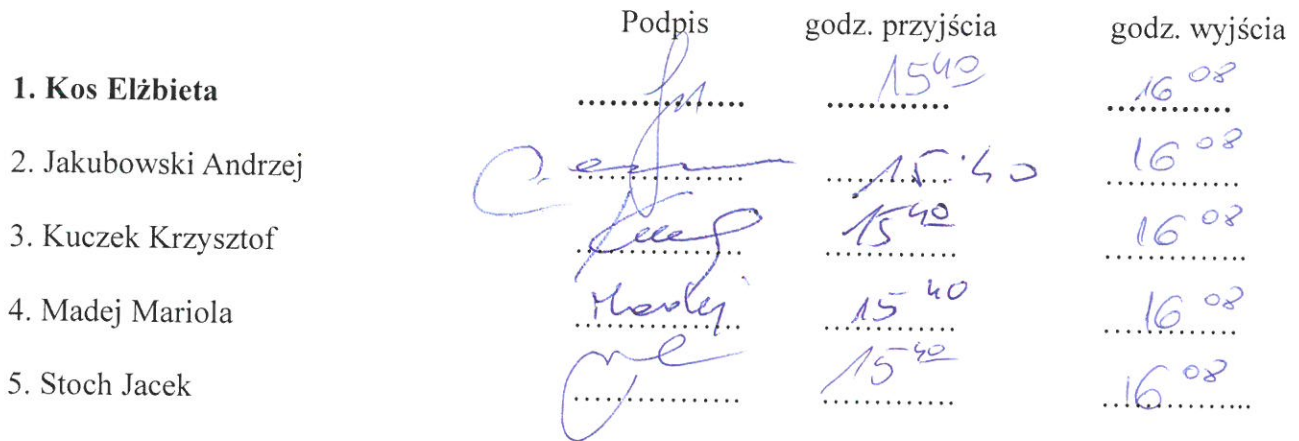 Podpis godz. przyjścia godz. wyjścia
1. Kos Elżbieta .................. 15 40 16 08
2. Jakubowski Andrzej .................. 15:40 16 08
3. Kuczek Krzysztof .................. 15 40 16 08
4. Madej Mariola Madej 15 40 16 08
5. Stoch Jacek .................. 15 40 16 08